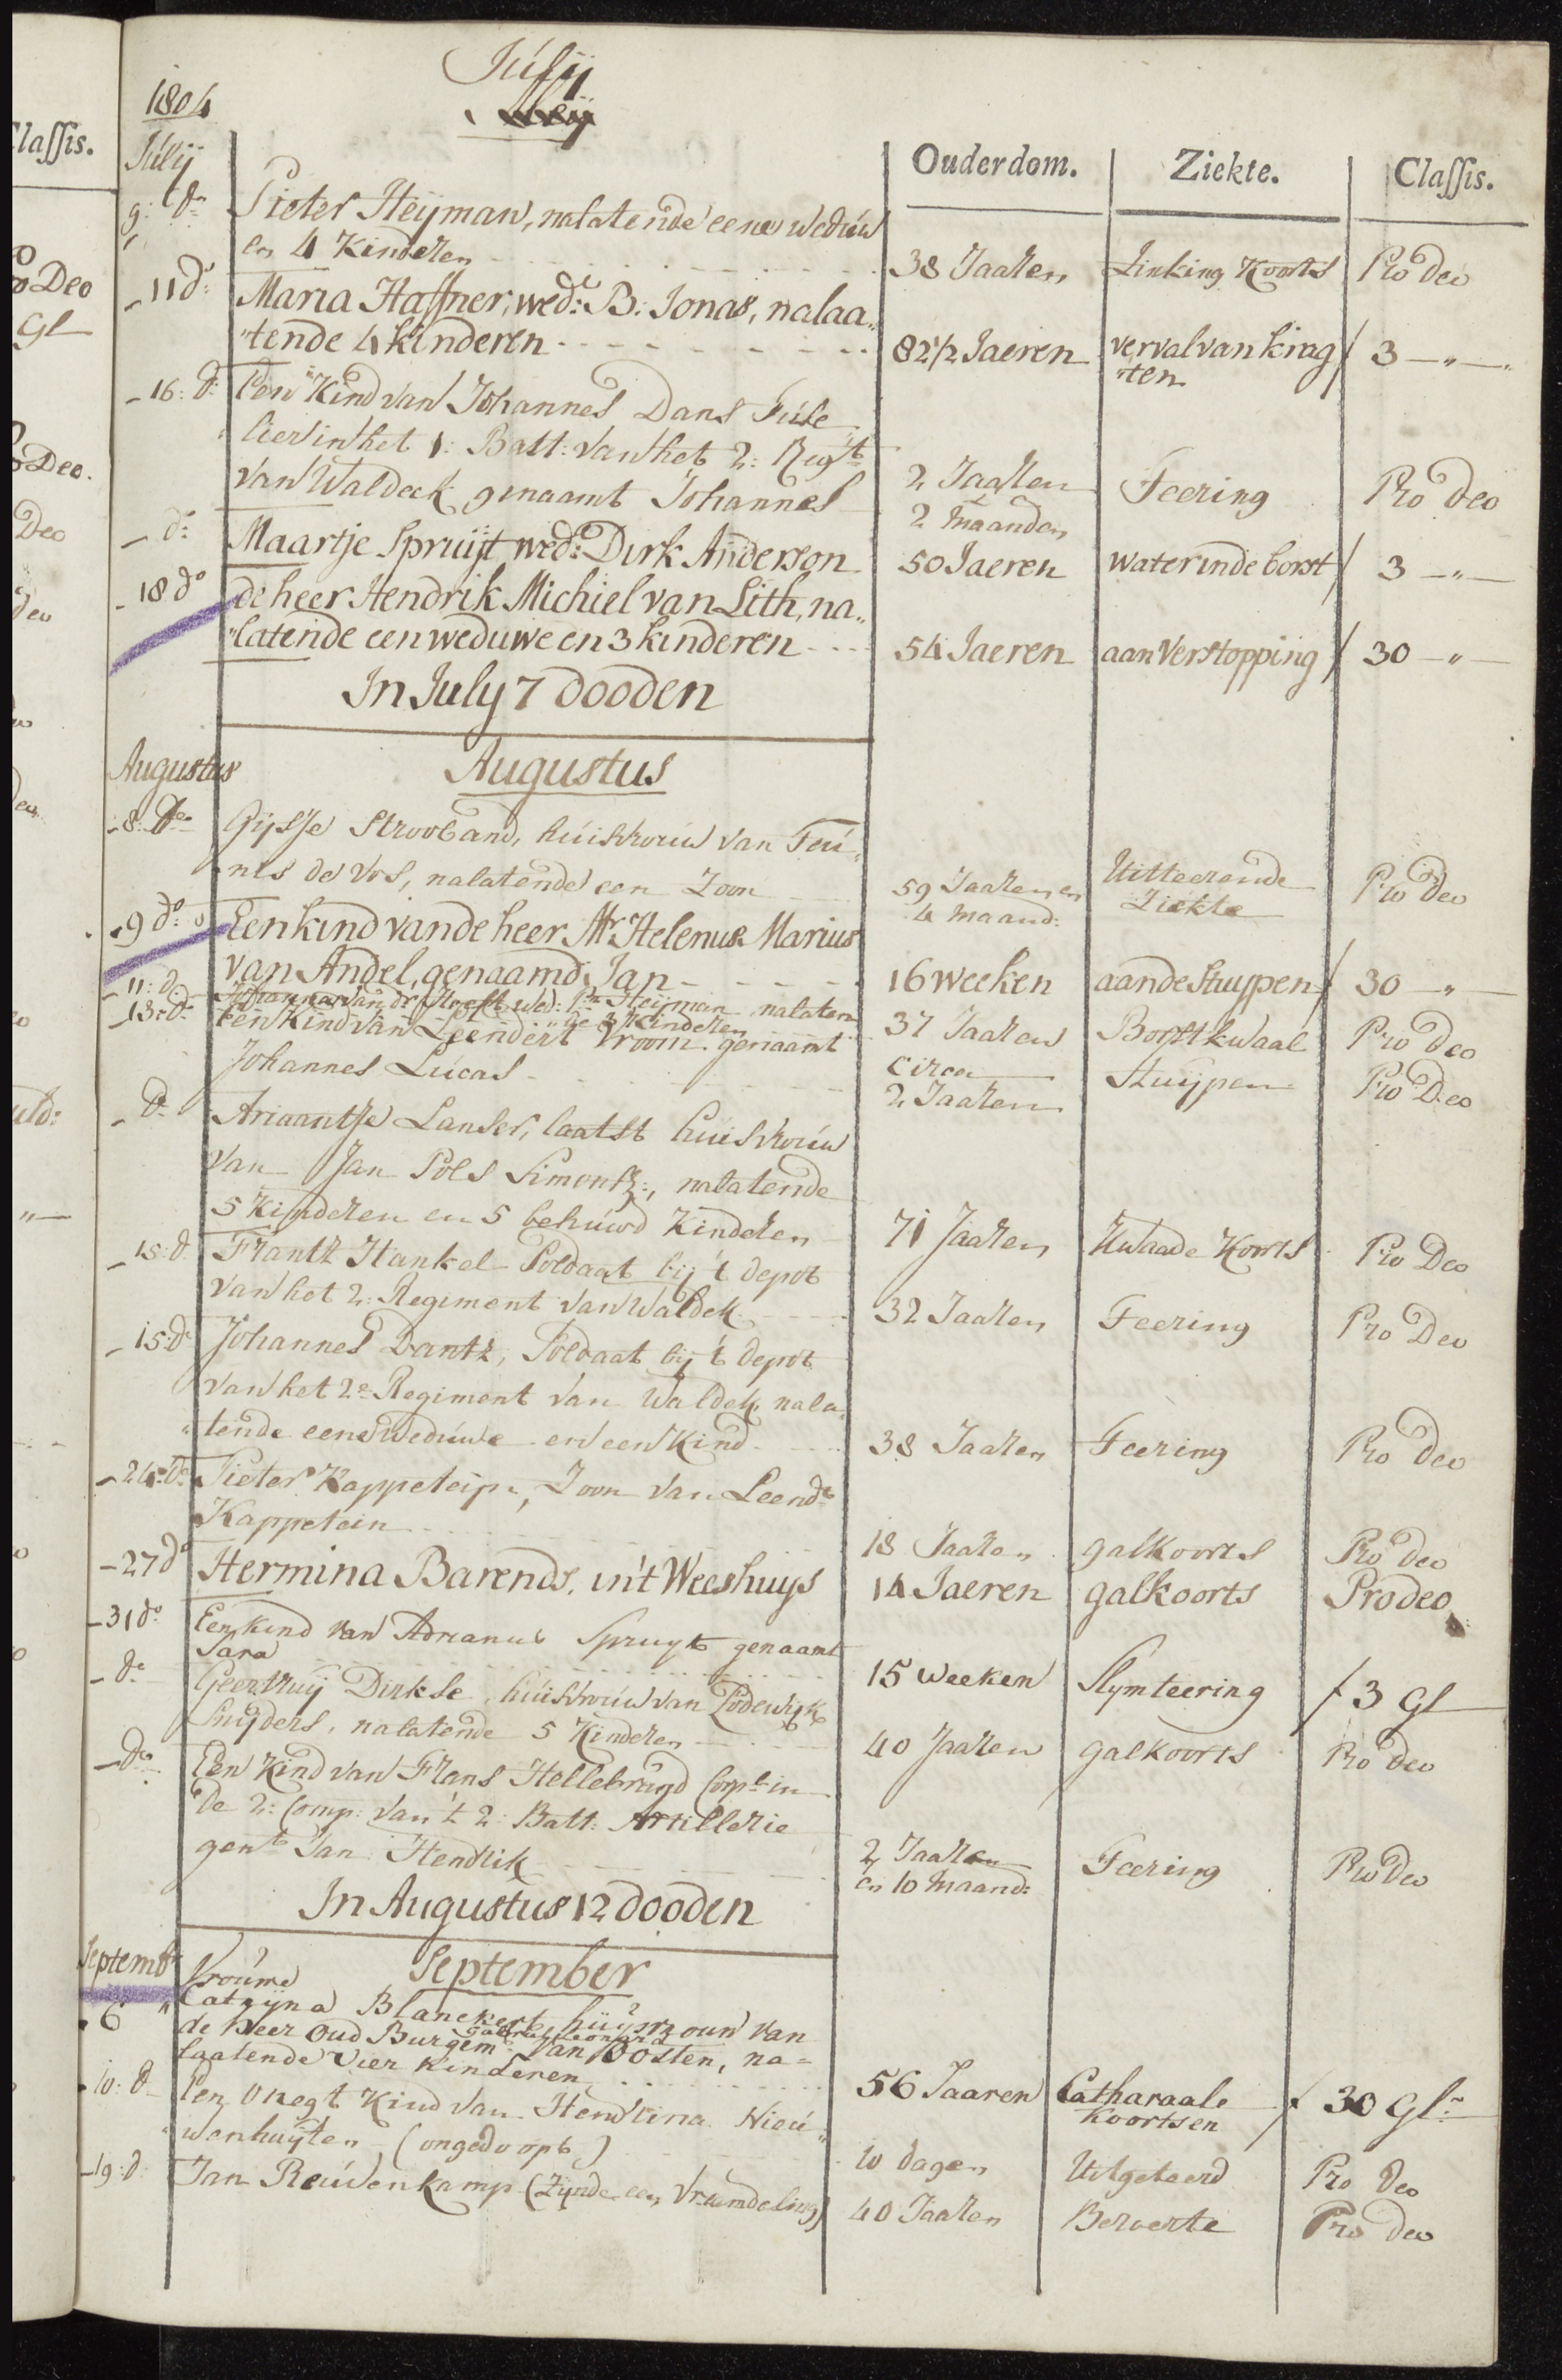 Júlij
1804
Meij
Júlij
Ouderdom. Ziekte. Classis.
9: do Pieter Heijman, nalatende eene weduw
en 4 Kinderen 38 Jaaren Zinking Koorts Pro Deo
- 11 do: Maria Haffner, wede: B: Jonas, nalaa„
„tende 4 kinderen 82 1/2 Jaeren verval van krag ƒ 3 -„-
„ten
- 16: do: Een Kind van Johannes Dans Fúse
lier in het 1: Batt: van het 2: Regt
van Waldeck genaamt Johannes 2 Jaaren Teering Pro Deo
2 maanden
- do: Maartje Spruijt wede: Dirk Anderson 50 Jaeren water in de borst ƒ 3 -„-
- 18 do de heer Hendrik Michiel van Lith, na„
„latende een weduwe en 3 kinderen 54 Jaeren aan Verstopping ƒ 30 -„-
In July 7 dooden
Augustus Augustus
- 8: do Gijsje Strooband, huisvrouw van Teú„
nis de Vos, nalatende een Zoon 59 Jaaren en Uitteerende Pro Deo
4 maand: Ziekte
- 9 do: Een kind van de heer Mr Helenus Marius
van Andel, genaamd Jan 16 weeken aan de Stuypen ƒ 30 -„-
- 11: do Johanna van der Hoeft wed: Pr Heijman nalaten
„de 4 Kinderen 37 Jaaren Borstkwaal Pro Deo
- 13: do Een Kind van Leendert Vroom genaamt
Johannes Lúcas circa Stuijpen Pro Deo
2 Jaaren
- do Ariaantje Lanser, laatst huisvrouw
van Jan Pols Simonsz:, nalatende
5 Kinderen en 5 behúwd Kinderen 71 Jaaren Kwaade Koorts Pro Deo
- 15: do Frantz Hankel Soldaat bij 't depot
van het 2: Regiment van Waldek 32 Jaaren Teering Pro Deo
- 15: do Johannes Dantz, Soldaat bij 't depot
van het 2e Regiment van Waldek, nala„
„tende eene Wedúwe en een Kind 38 Jaaren Teering Pro Deo
- 24: do Pieter Kappeteijn, Zoon van Leendt
Kappetein 18 Jaaren galkoorts Pro Deo
- 27 do Hermina Barends, in 't Weeshuys 14 Jaeren galkoorts Pro deo
- 31 do: Een kind van Adrianus Spruyt genaamt
Sara 15 weeken Slymteering ƒ 3 Gl
- do Geertruij Dirkse, huisvrouw van Lodewijk
Snijders, nalatende 5 Kinderen 40 Jaaren galkoorts Pro Deo
- do Een Kind van Frans Hellebrugd Corpl in
de 2: Comp: van 't 2: Batt: Artillerie
gent Jan Hendrik 2 Jaaren Teering Pro Deo
en 10 maand:
In Augustus 12 dooden
Septembr September
Vrouwe
6 „ Catrijna Blanckert, huijsvrouw van
de heer Oud Burgemr: Leonard van Oosten, na=
laatende vier kinderen 56 Jaaren Catharaale ƒ 30 Gls
Koortsen
10: do Een Onegt Kind van Hendrina Nieú„
wenhuijzen (ongedoopt) 10 dagen Uitgeteerd Pro Deo
- 19: do Jan Reúvenkamp (Zijnde een Vreemdeling) 40 Jaaren Beroerte Pro Deo
lassis.
Deo
Gl
Deo.
Deo